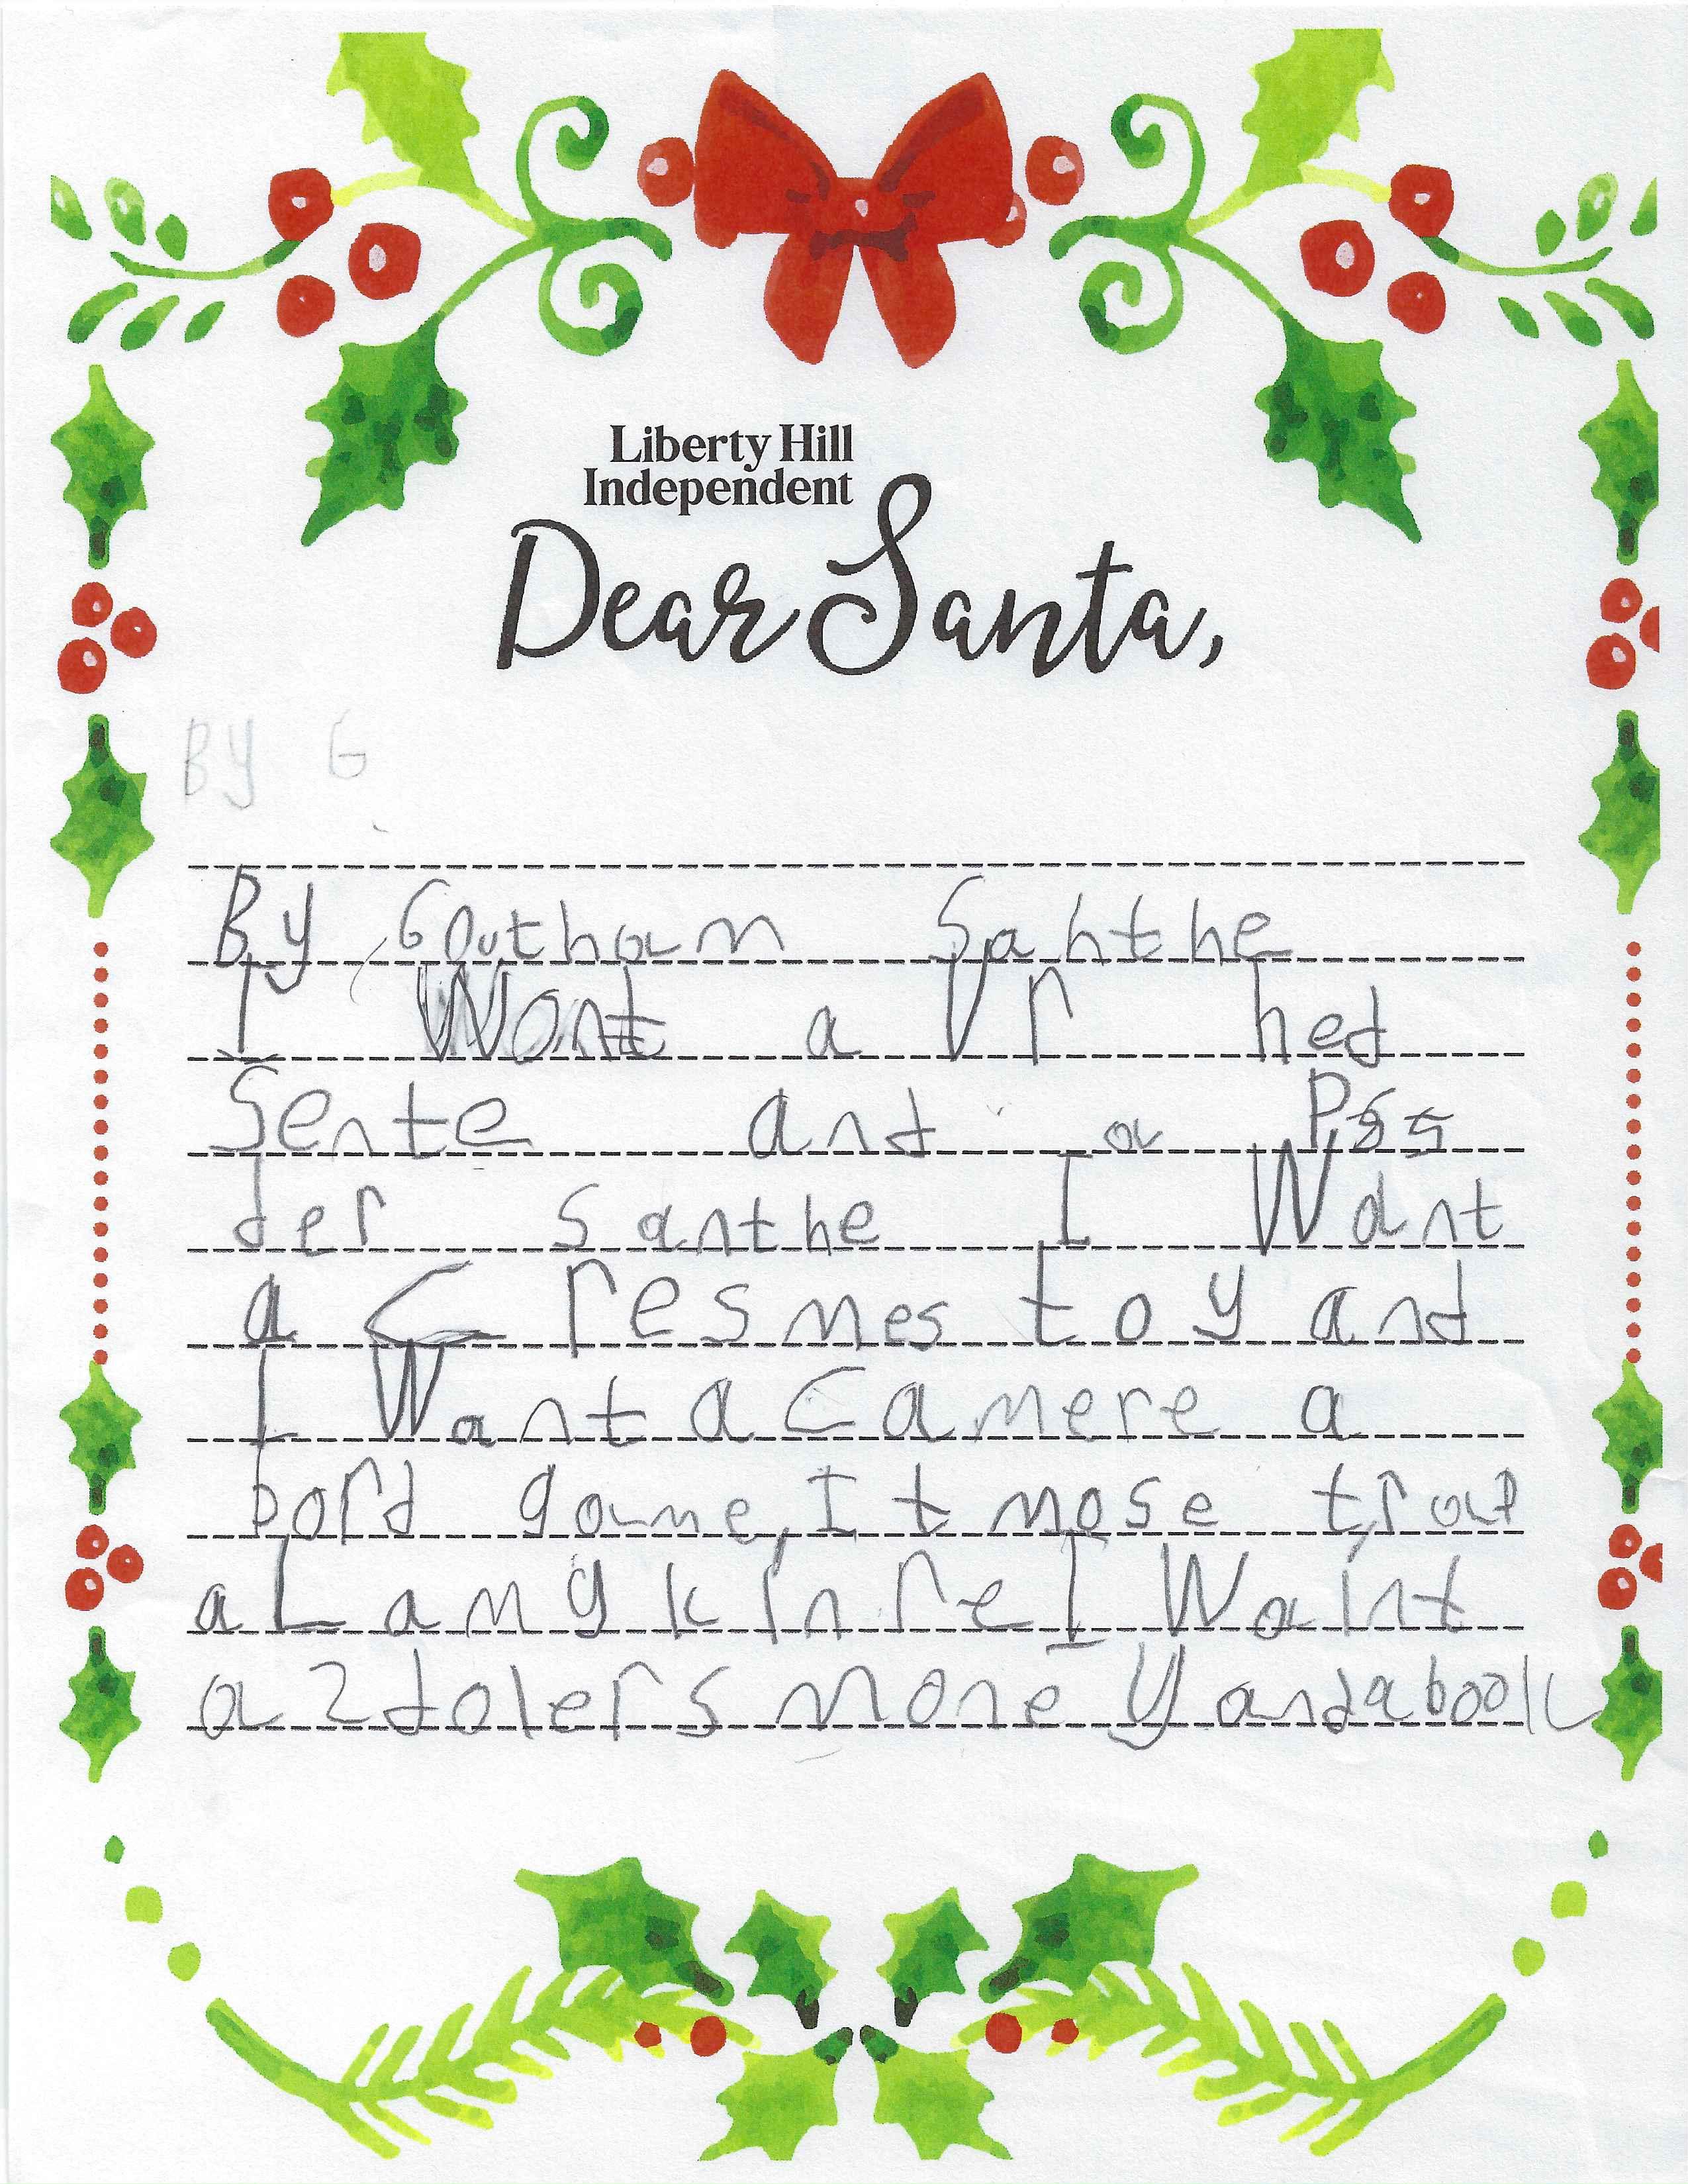 Liberty Hill
Independent
Dear Santa,
By G
By Goutham Santhe
I Want a Vr hed
Sente and a PS5
der santhe I Want
a Cresmes toy and
I Want a Camere a
bord game, It mose
a L amy kinre I Waint
a 2 dolers money and a book